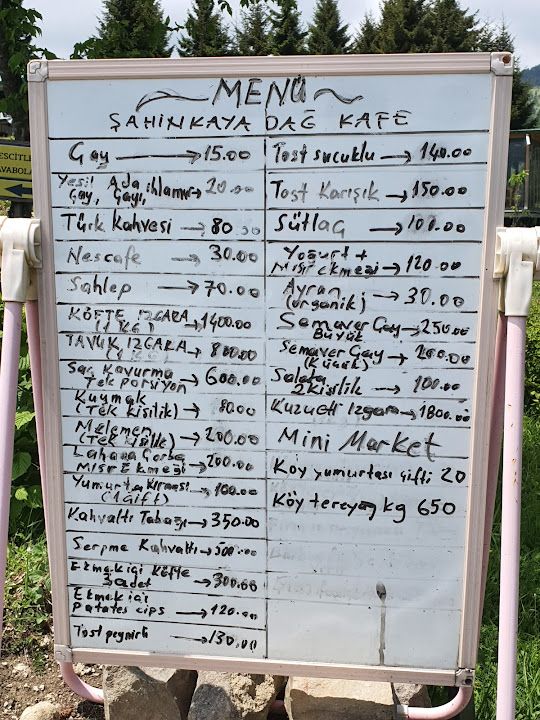 MENÜ
ŞAHİNKAYA DAĞ KAFE
Çay → 15.00
Yeşil Çay, Ada Çayı, ıhlamur → 20.00
Türk kahvesi → 80.00
Nescafe → 30.00
Sahlep → 70.00
KÖFTE IZGARA (1 KG) → 1400.00
TAVUK IZGARA (1 KG) → 800.00
Saç Kavurma Tek porsiyon → 600.00
Kuymak (Tek Kişilik) → 80.00
Melemen (Tek Kişilik) → 200.00
Lahana Çorba Mısır Ekmeği → 200.00
Yumurta Kırması (1 Çift) → 100.00
Kahvaltı Tabağı → 350.00
Serpme Kahvaltı → 500.00
Ekmek içi Köfte 3 adet → 300.00
Ekmek içi Patates cips → 120.00
Tost peynirli → 130.00
Tost sucuklu → 140.00
Tost Karışık → 150.00
Sütlaç → 100.00
Yoğurt + Mısır ekmeği → 120.00
Ayran (organik) → 30.00
Semaver Çay Büyük → 250.00
Semaver Çay (Küçük) → 200.00
Salata 2 Kişilik → 100.00
Kuzu eti Izgara → 1800.00
Mini Market
Köy yumurtası çifti 20
Köy tereyağ kg 650